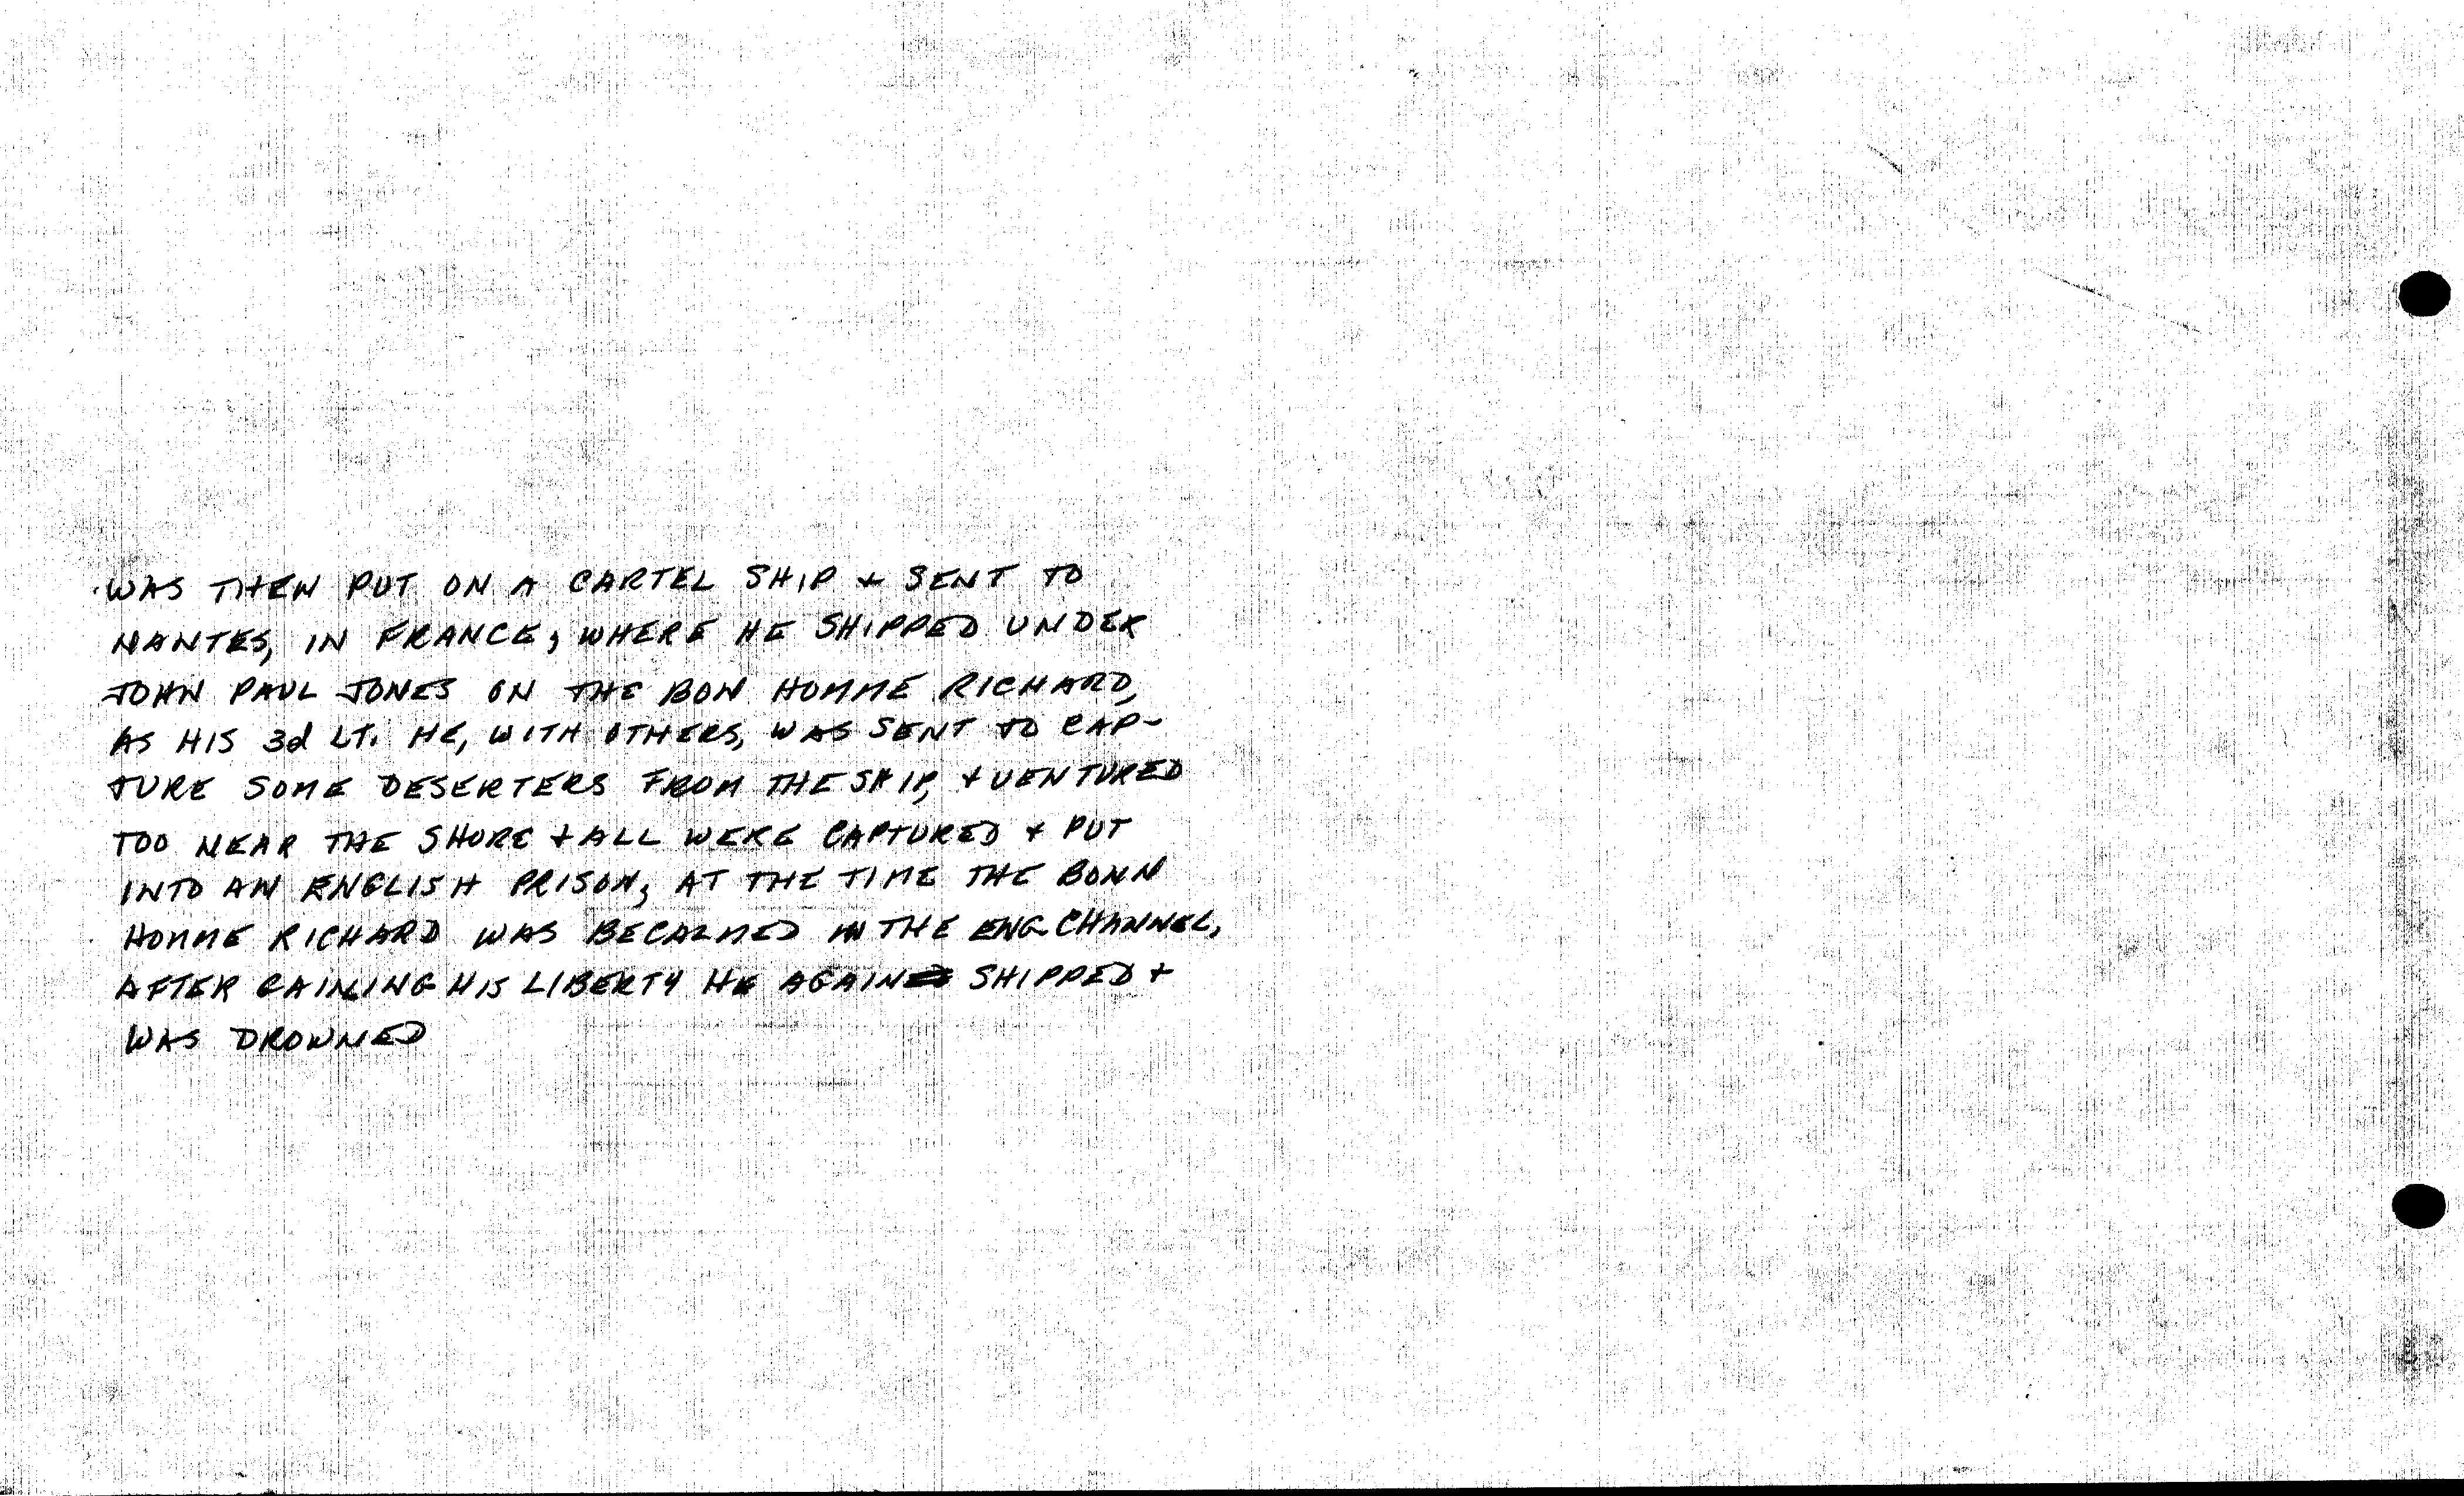 WAS THEN PUT ON A CARTEL SHIP + SENT TO
NANTES, IN FRANCE, WHERE HE SHIPPED UNDER
JOHN PAUL JONES ON THE BON HOMME RICHARD,
AS HIS 3d LT. HE, WITH OTHERS, WAS SENT TO CAP-
TURE SOME DESERTERS FROM THE SHIP, + VENTURED
TOO NEAR THE SHORE + ALL WERE CAPTURED + PUT
INTO AN ENGLISH PRISON, AT THE TIME THE BONN
HOMME RICHARD WAS BECALMED IN THE ENG. CHANNEL,
AFTER GAINING HIS LIBERTY HE AGAIN SHIPPED +
WAS DROWNED